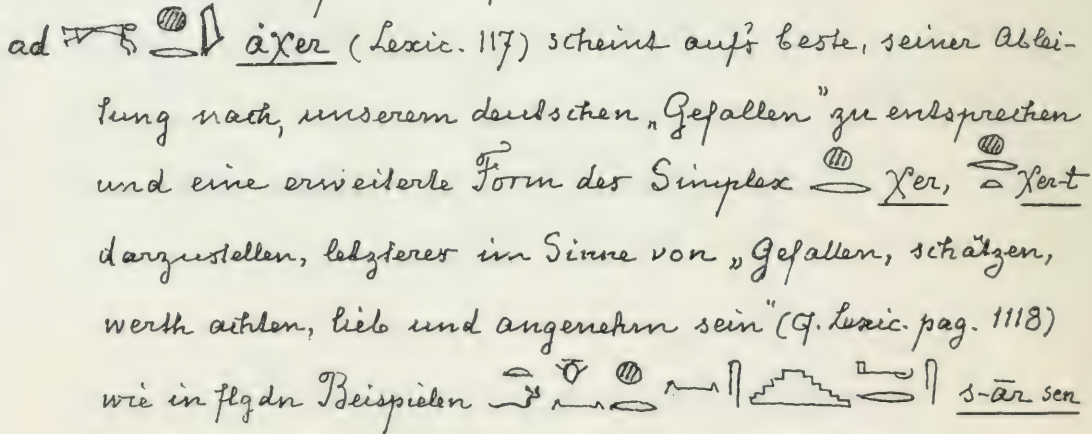 ad 𓂝𓐍𓂋 àχer (Lexic. 117) scheint auf's beste, seiner Ablei-
tung nach, unserem deutschen „Gefallen" zu entsprechen
und eine erweiterte Form des Simplex 𓐍𓂋 χer, 𓐍𓂋𓏏 χer-t
darzustellen, letzteres im Sinne von „Gefallen, schätzen,
werth achten, lieb und angenehm sein" (cf. Lexic. pag. 1118)
wie in flgdn Beispielen s-ār sen